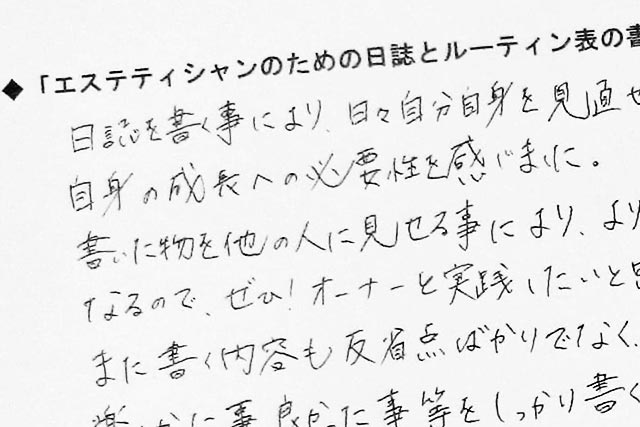 ◆「エステティシャンのための日誌とルーティン表の書
日誌を書く事により、日々自分自身を見直せ
自身の成長への必要性を感じました。
書いた物を他の人に見せる事により、より
なるので、ぜひ!オーナーと実践したいと思
また書く内容も反省点ばかりでなく、
楽しかった事良かった事等をしっかり書く